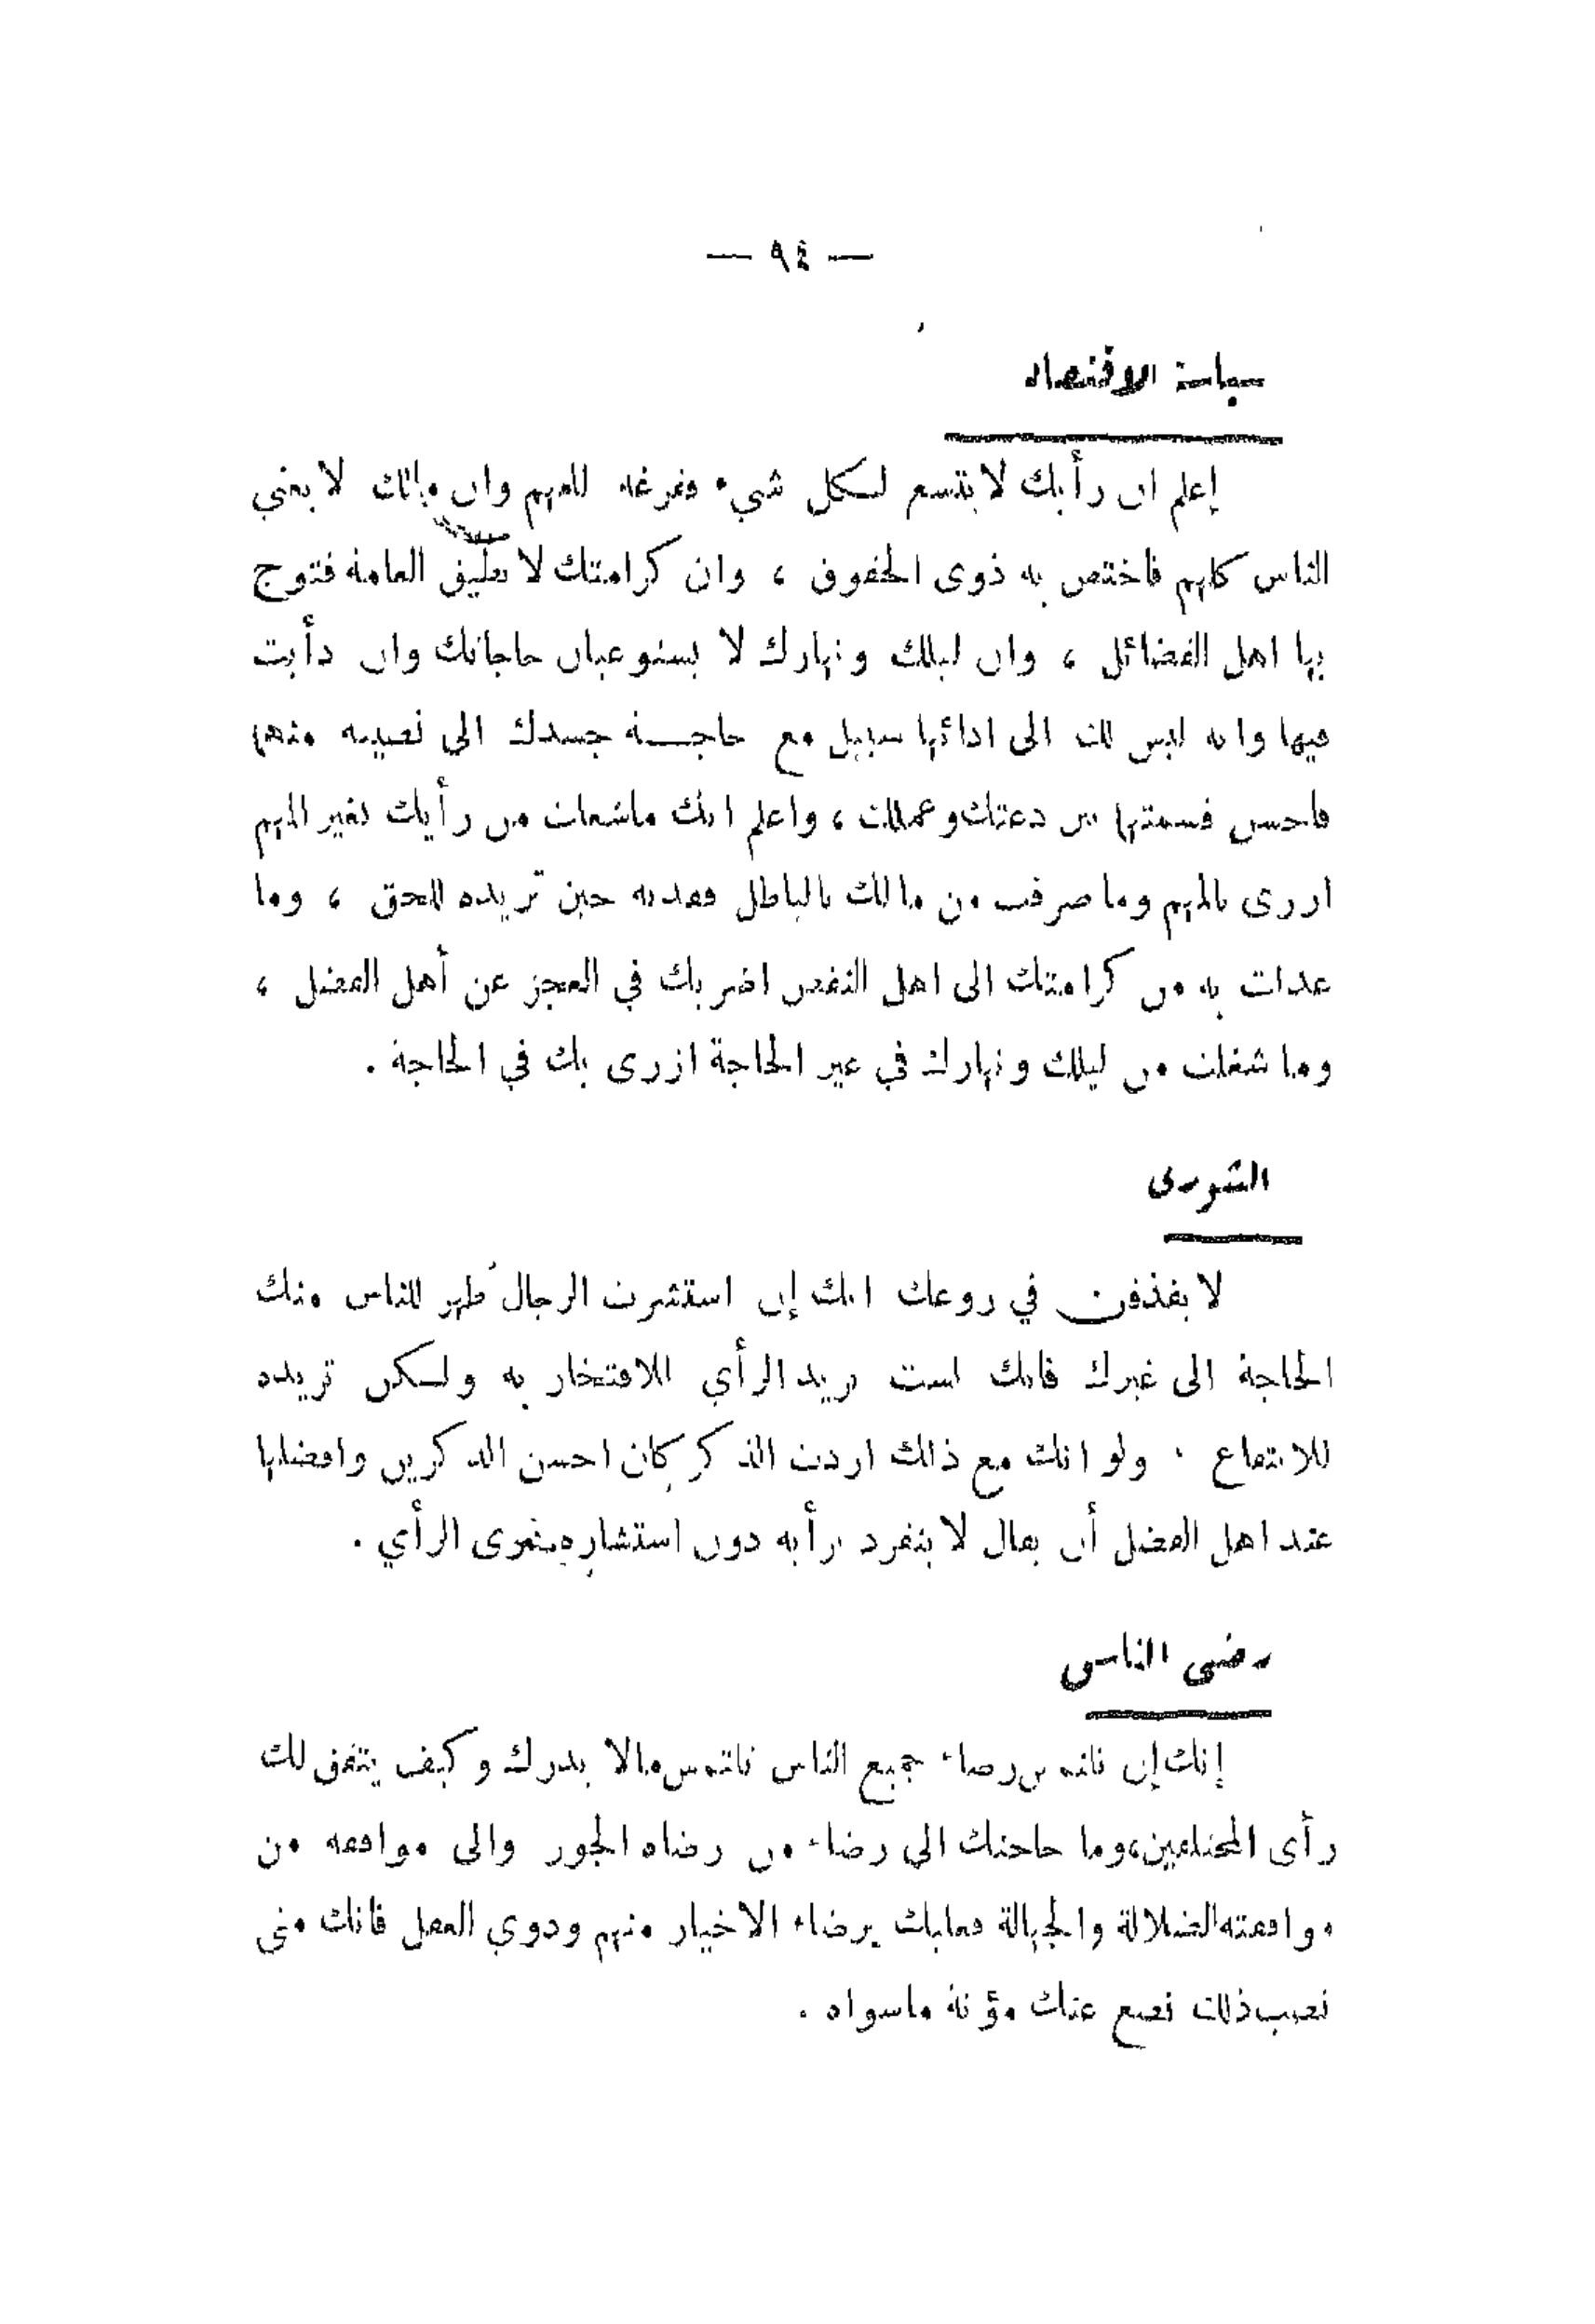 — ٩٤ —
سياسة الاقتصاد
إعلم ان رأيك لا يتسع لكل شيء ففرغه للمهم وان مالك لا يغني
الناس كلهم فاختص به ذوى الحقوق ، وان كرامتك لا تطيق العامة فتوج
بها اهل الفضائل ، وان ليلك ونهارك لا يستوعبان حاجاتك وان دأبت
فيها وانه ليس لك الى ادائها سبيل مع حاجة جسدك الى نصيبه منهما
فاحسن قسمتها بين دعتك وعملك ، واعلم انك ماشغلت من رأيك بغير المهم
ازرى بالمهم وما صرفت من مالك بالباطل فقدته حين تريده للحق ، وما
عدلت به من كرامتك الى اهل النقص اضر بك في العجز عن أهل الفضل ،
وما شغلت من ليلك ونهارك في غير الحاجة ازرى بك في الحاجة .
الشورى
لا يقذفن في روعك انك إن استشرت الرجال ظهر للناس منك
الحاجة الى غيرك فانك لست تريد الرأي للافتخار به ولكن تريده
للانتفاع . ولو انك مع ذلك اردت الذكر كان احسن الذكرين وافضلها
عند اهل الفضل أن يقال لا ينفرد برأيه دون استشاره ذوى الرأي .
رضى الناس
إنك إن تلتمس رضاء جميع الناس تلتمس مالا يدرك وكيف يتفق لك
رأى المختلفين، وما حاجتك الى رضاء من رضاه الجور والى موافقه من
موافقته الضلالة والجهالة فعليك برضاء الاخيار منهم وذوي العقل فانك متى
تصب ذلك تضع عنك مؤنة ماسواه .